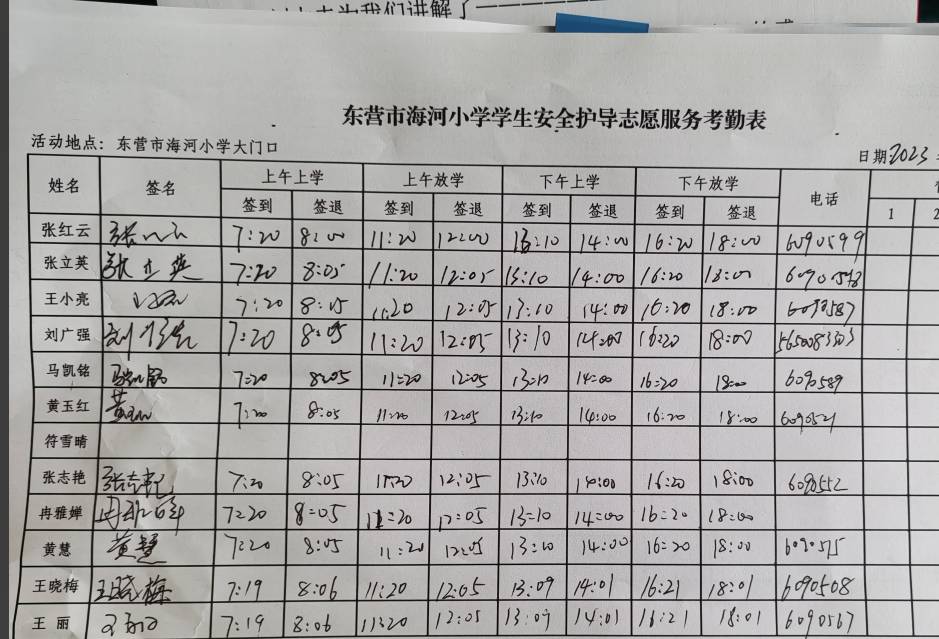 为我们讲解了
东营市海河小学学生安全护导志愿服务考勤表
活动地点：东营市海河小学大门口
日期2023
姓名 签名 上午上学 上午放学 下午上学 下午放学 电话
签到 签退 签到 签退 签到 签退 签到 签退 1 2
张红云 张红云 7:20 8:00 11:20 12:00 13:10 14:00 16:20 18:00 6090599
张立英 张立英 7:20 8:05 11:20 12:05 13:10 14:00 16:20 18:00
王小亮 7:20 8:05 11:20 12:05 13:10 14:00 16:20 18:00 6090587
刘广强 刘广强 7:20 8:05 11:20 12:05 13:10 14:00 16:20 18:00
马凯铭 马凯铭 7:20 8:05 11:20 12:05 13:10 14:00 16:20 18:00 6090589
黄玉红 黄玉红 7:20 8:05 11:20 12:05 13:10 14:00 16:20 18:00 6090521
符雪晴
张志艳 张志艳 7:20 8:05 11:20 12:05 13:10 14:00 16:20 18:00 6090552
冉雅婵 冉雅婵 7:20 8:05 11:20 12:05 13:10 14:00 16:20 18:00
黄慧 黄慧 7:20 8:05 11:20 12:05 13:10 14:00 16:20 18:00 6090515
王晓梅 王晓梅 7:19 8:06 11:20 12:05 13:09 14:01 16:21 18:01 6090508
王丽 王丽 7:19 8:06 11:20 12:05 13:09 14:01 16:21 18:01 6090567